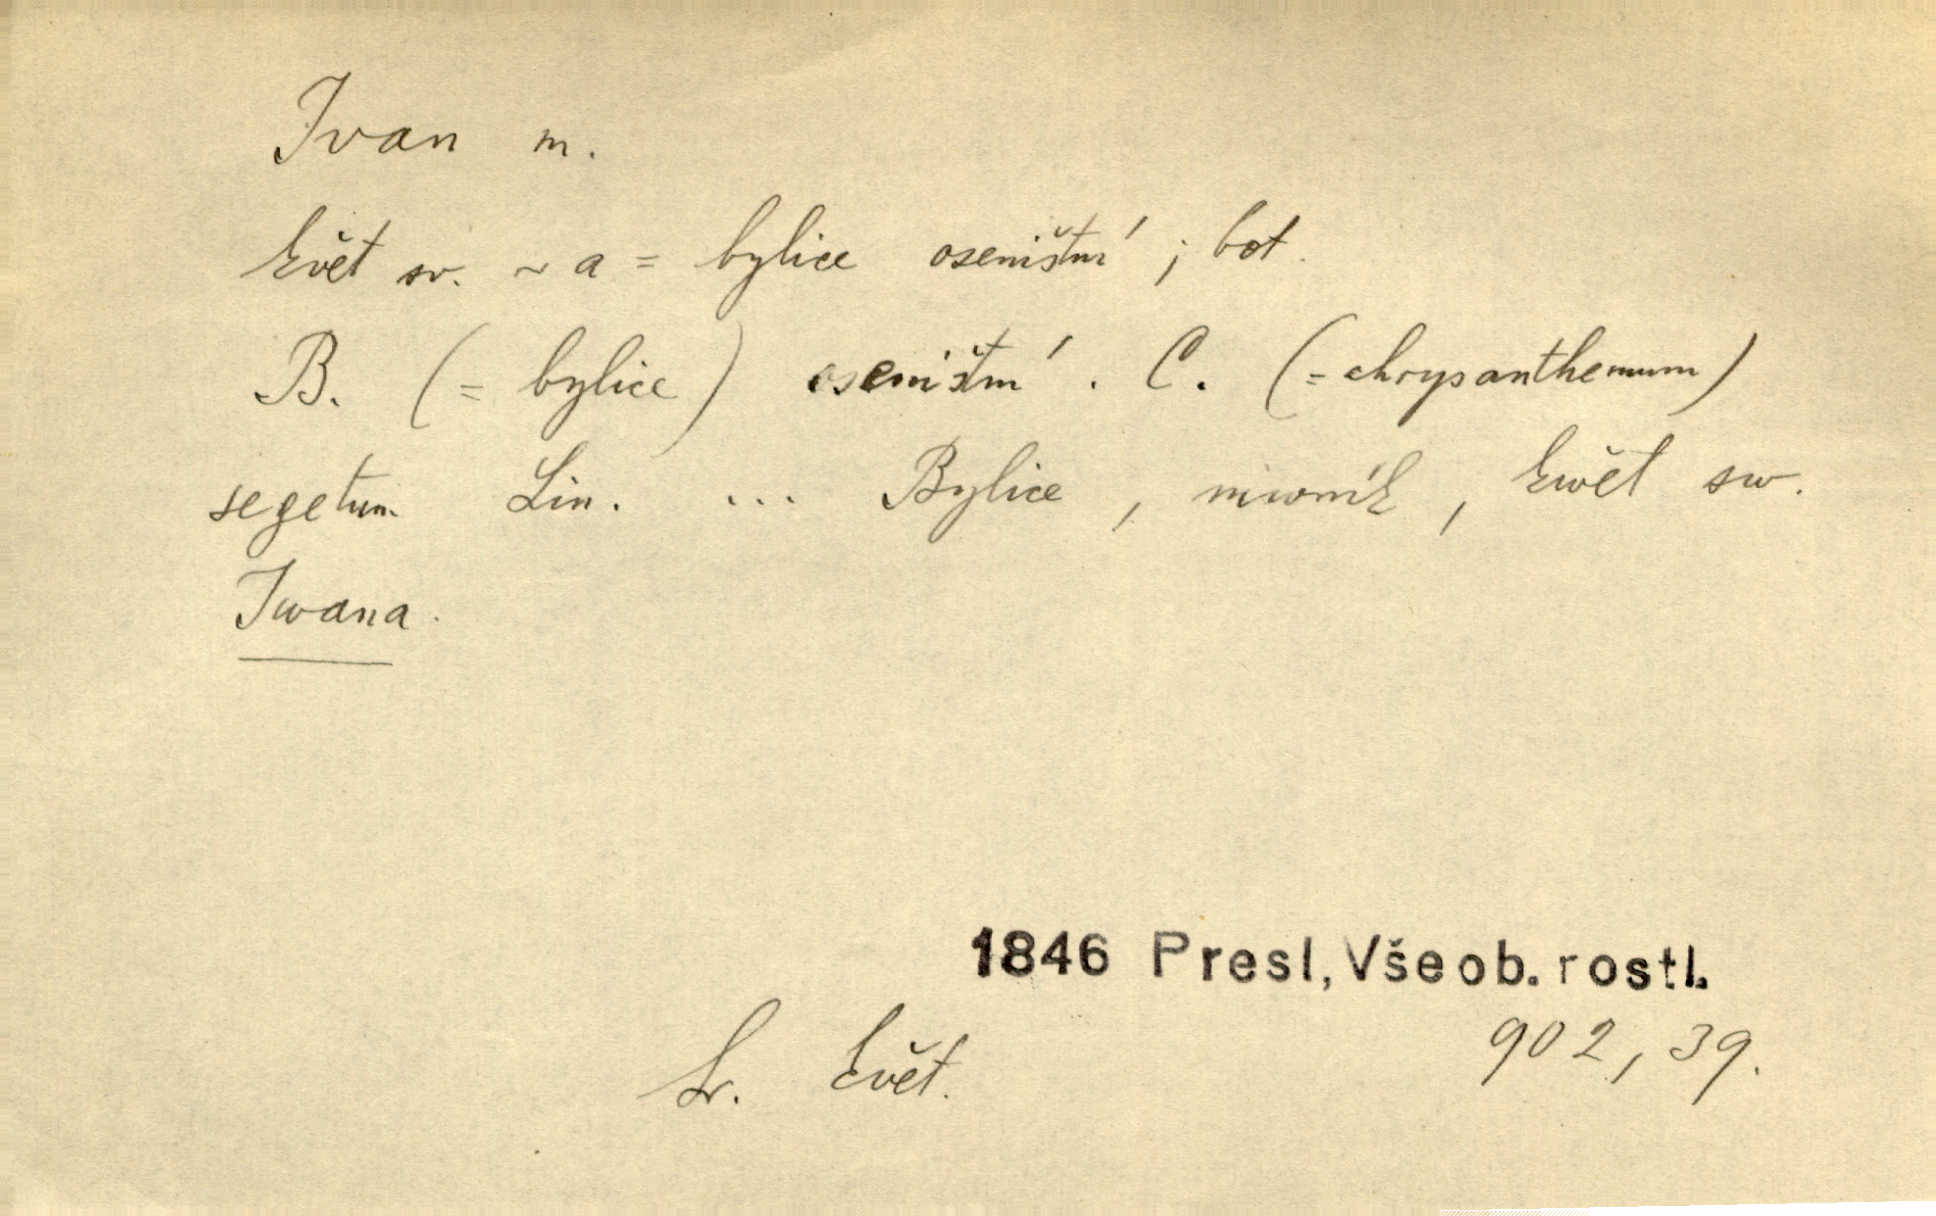 Ivan m.
květ sv. ~a = bylice oseništní ; bot.
B. (= bylice) oseništní. C. (= chrysanthemum)
segetum Lin. ... Bylice, niwník, kwět sw.
Iwana.
1846 Presl, Všeob. rostl.
902, 39.
Sr. květ.